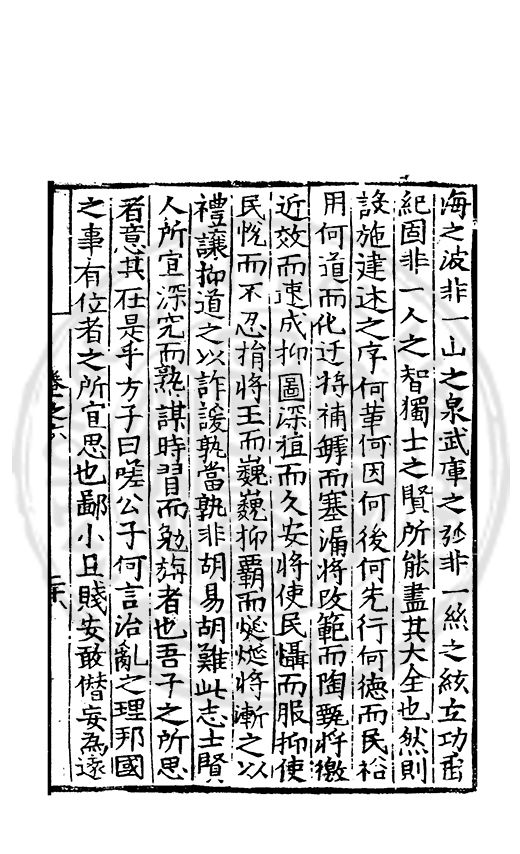 海之波非一山之泉武庫之弥非一絲之紘立功畱
紀固非一人之智獨士之賢所能盡其大全也然則
設施建述之序何革何因何後何先行何徳而民裕
用何道而化迁将補罅而塞漏将改範而陶甄将徼
近效而速成抑圖深植而久安将使民懾而服抑使
民悦而不忍捐将王而巍巍抑霸而烻烻将漸之以
禮讓抑道之以詐諼孰當孰非胡易胡難此志士賢
人所宜深究而熟謀時習而勉旃者也吾子之所思
者意其在是乎方子曰嗟公子何言治亂之理邦國
之事有位者之所宜思也鄙小且賤安敢僭妄為遠
卷之六
二十六